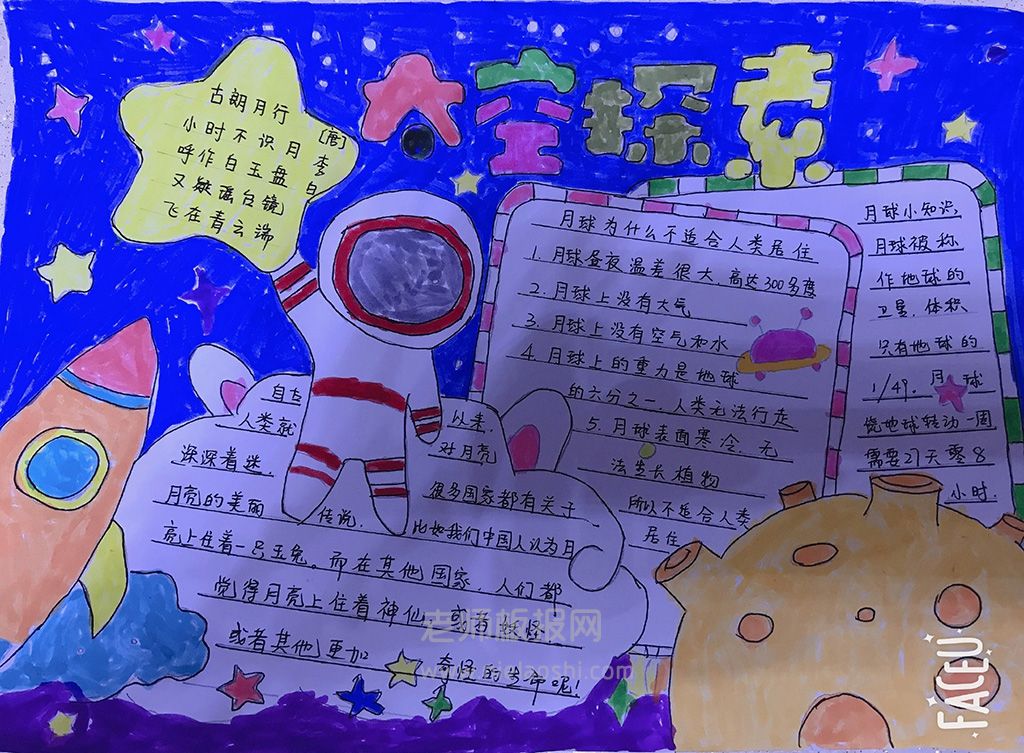 太空探索
古朗月行
[唐]李白
小时不识月
呼作白玉盘
又疑瑶台镜
飞在青云端
月球为什么不适合人类居住
1.月球昼夜温差很大,高达300多度
2.月球上没有大气
3.月球上没有空气和水
4.月球上的重力是地球
的六分之一,人类无法行走
5.月球表面寒冷,无
法生长植物
所以不适合人类
居住
月球小知识
月球被称
作地球的
卫星,体积
只有地球的
1/49,月球
绕地球转动一周
需要27天零8
小时.
自古以来,
人类就对月亮
深深着迷.
月亮的美丽传说,很多国家都有关于
比如我们中国人认为月
亮上住着一只玉兔。而在其他国家,人们都
觉得月亮上住着神仙或者妖怪
或者其他更加奇怪的生命呢!
老师板报网
FACEU